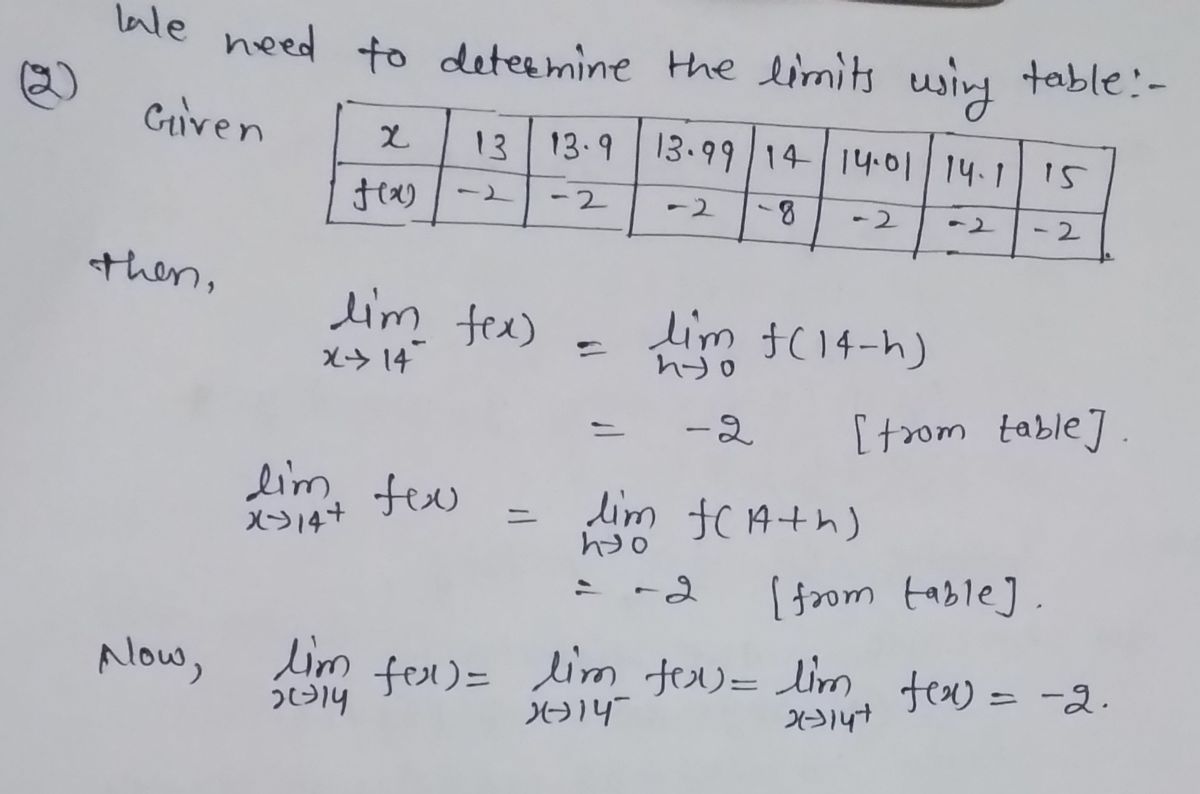 We need to determine the limits using table:-
(2)
Given
x | 13 | 13.9 | 13.99 | 14 | 14.01 | 14.1 | 15
f(x) | -2 | -2 | -2 | -8 | -2 | -2 | -2
then,
lim x→14⁻ f(x) = lim h→0 f(14-h)
= -2 [from table].
lim x→14+ f(x) = lim h→0 f(14+h)
= -2 [from table].
Now, lim x→14 f(x) = lim x→14⁻ f(x) = lim x→14+ f(x) = -2.